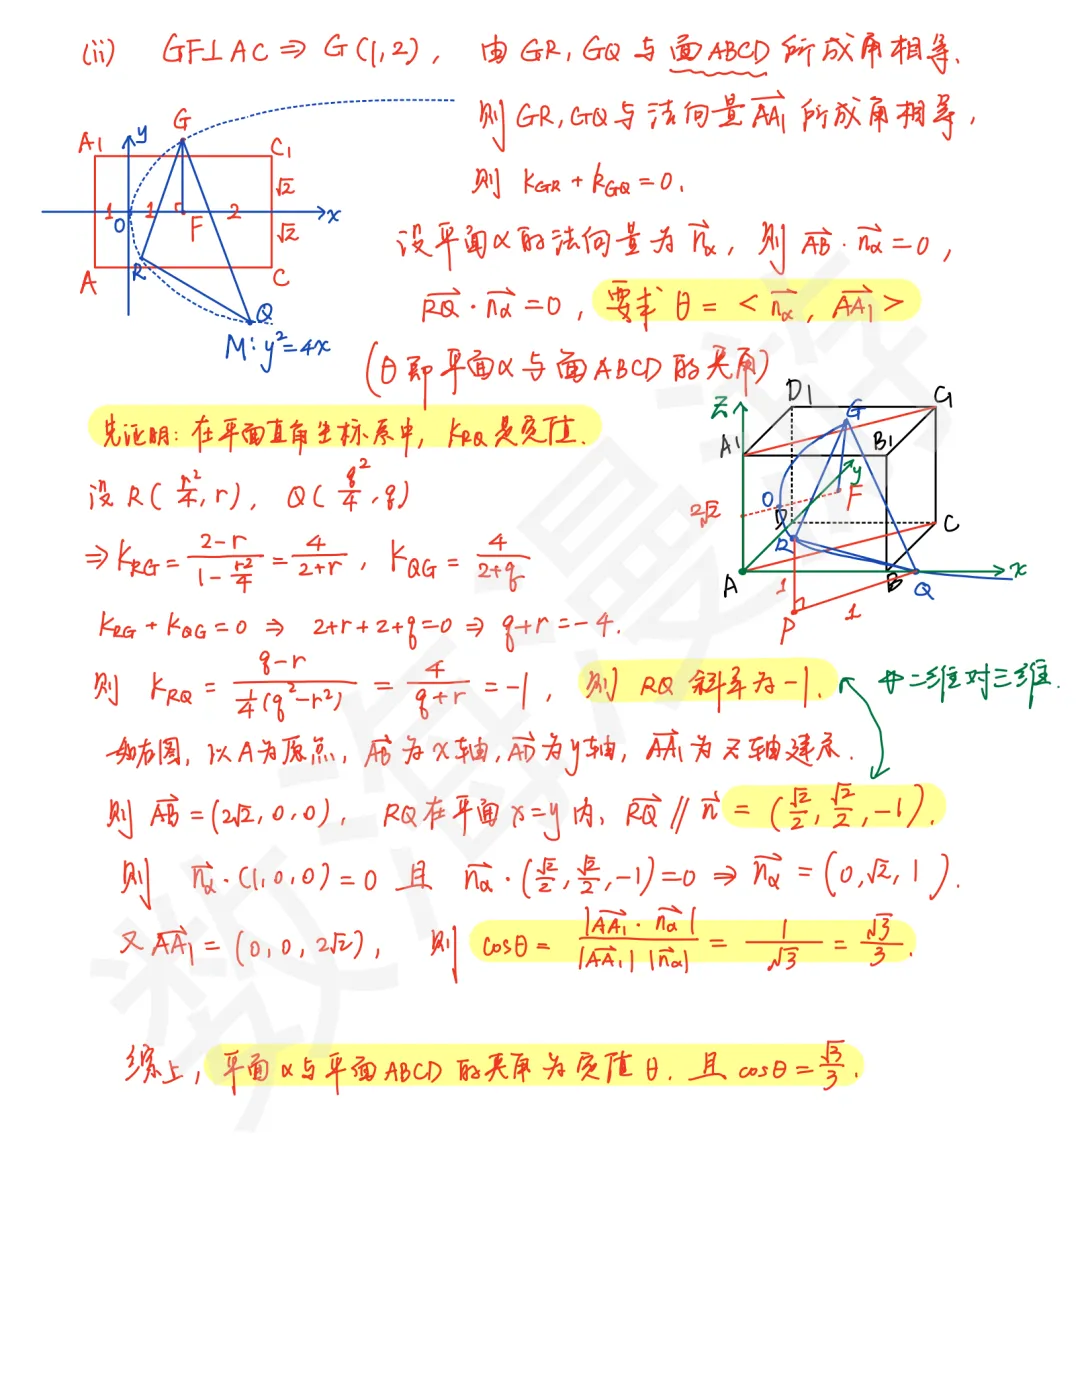 (ii) GF⊥AC ⇒ G(1,2), 由GR, GQ与面ABCD所成角相等.
则GR,GQ与法向量AA₁所成角相等,
则 k_GR + k_GQ = 0.
设平面α的法向量为n_α, 则 AB·n_α = 0,
RQ·n_α = 0, 要求 θ = <n_α, AA₁>
(θ即平面α与面ABCD的夹角)
A₁ y G C₁
√2
1 O 1 F 2 x
√2
A R C
Q
M: y²=4x
先证明: 在平面直角坐标系中, k_RQ是定值.
设 R(r²/4, r), Q(q²/4, q)
⇒ k_RG = (2-r)/(1-r²/4) = 4/(2+r), k_QG = 4/(2+q)
k_RG + k_QG = 0 ⇒ 2+r+2+q=0 ⇒ q+r=-4.
则 k_RQ = (q-r)/(¼(q²-r²)) = 4/(q+r) = -1, 则 RQ 斜率为-1.
二维对三维.
z D₁ G G
A₁ B₁
y
2√2 O F
D C
R
A B Q x
1 1
P
如右图, 以A为原点, AB为x轴, AD为y轴, AA₁为z轴建系.
则 AB = (2√2, 0, 0), RQ在平面x=y内, RQ // n = (√2/2, √2/2, -1).
则 n_α·(1,0,0)=0 且 n_α·(√2/2, √2/2, -1)=0 ⇒ n_α = (0, √2, 1).
又 AA₁ = (0, 0, 2√2), 则 cosθ = |AA₁·n_α| / |AA₁| |n_α| = 1/√3 = √3/3.
综上, 平面α与平面ABCD的夹角为定值θ. 且 cosθ = √3/3.
数海漫游